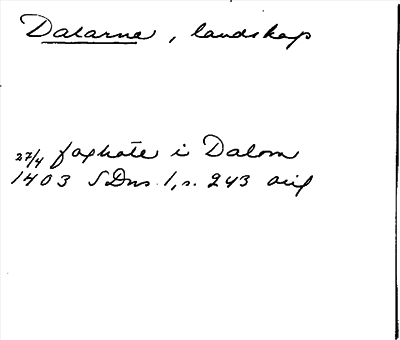 Dalarne, landskap
27/4 foghate i Dalom
1403 SDns 1, s. 243 orig